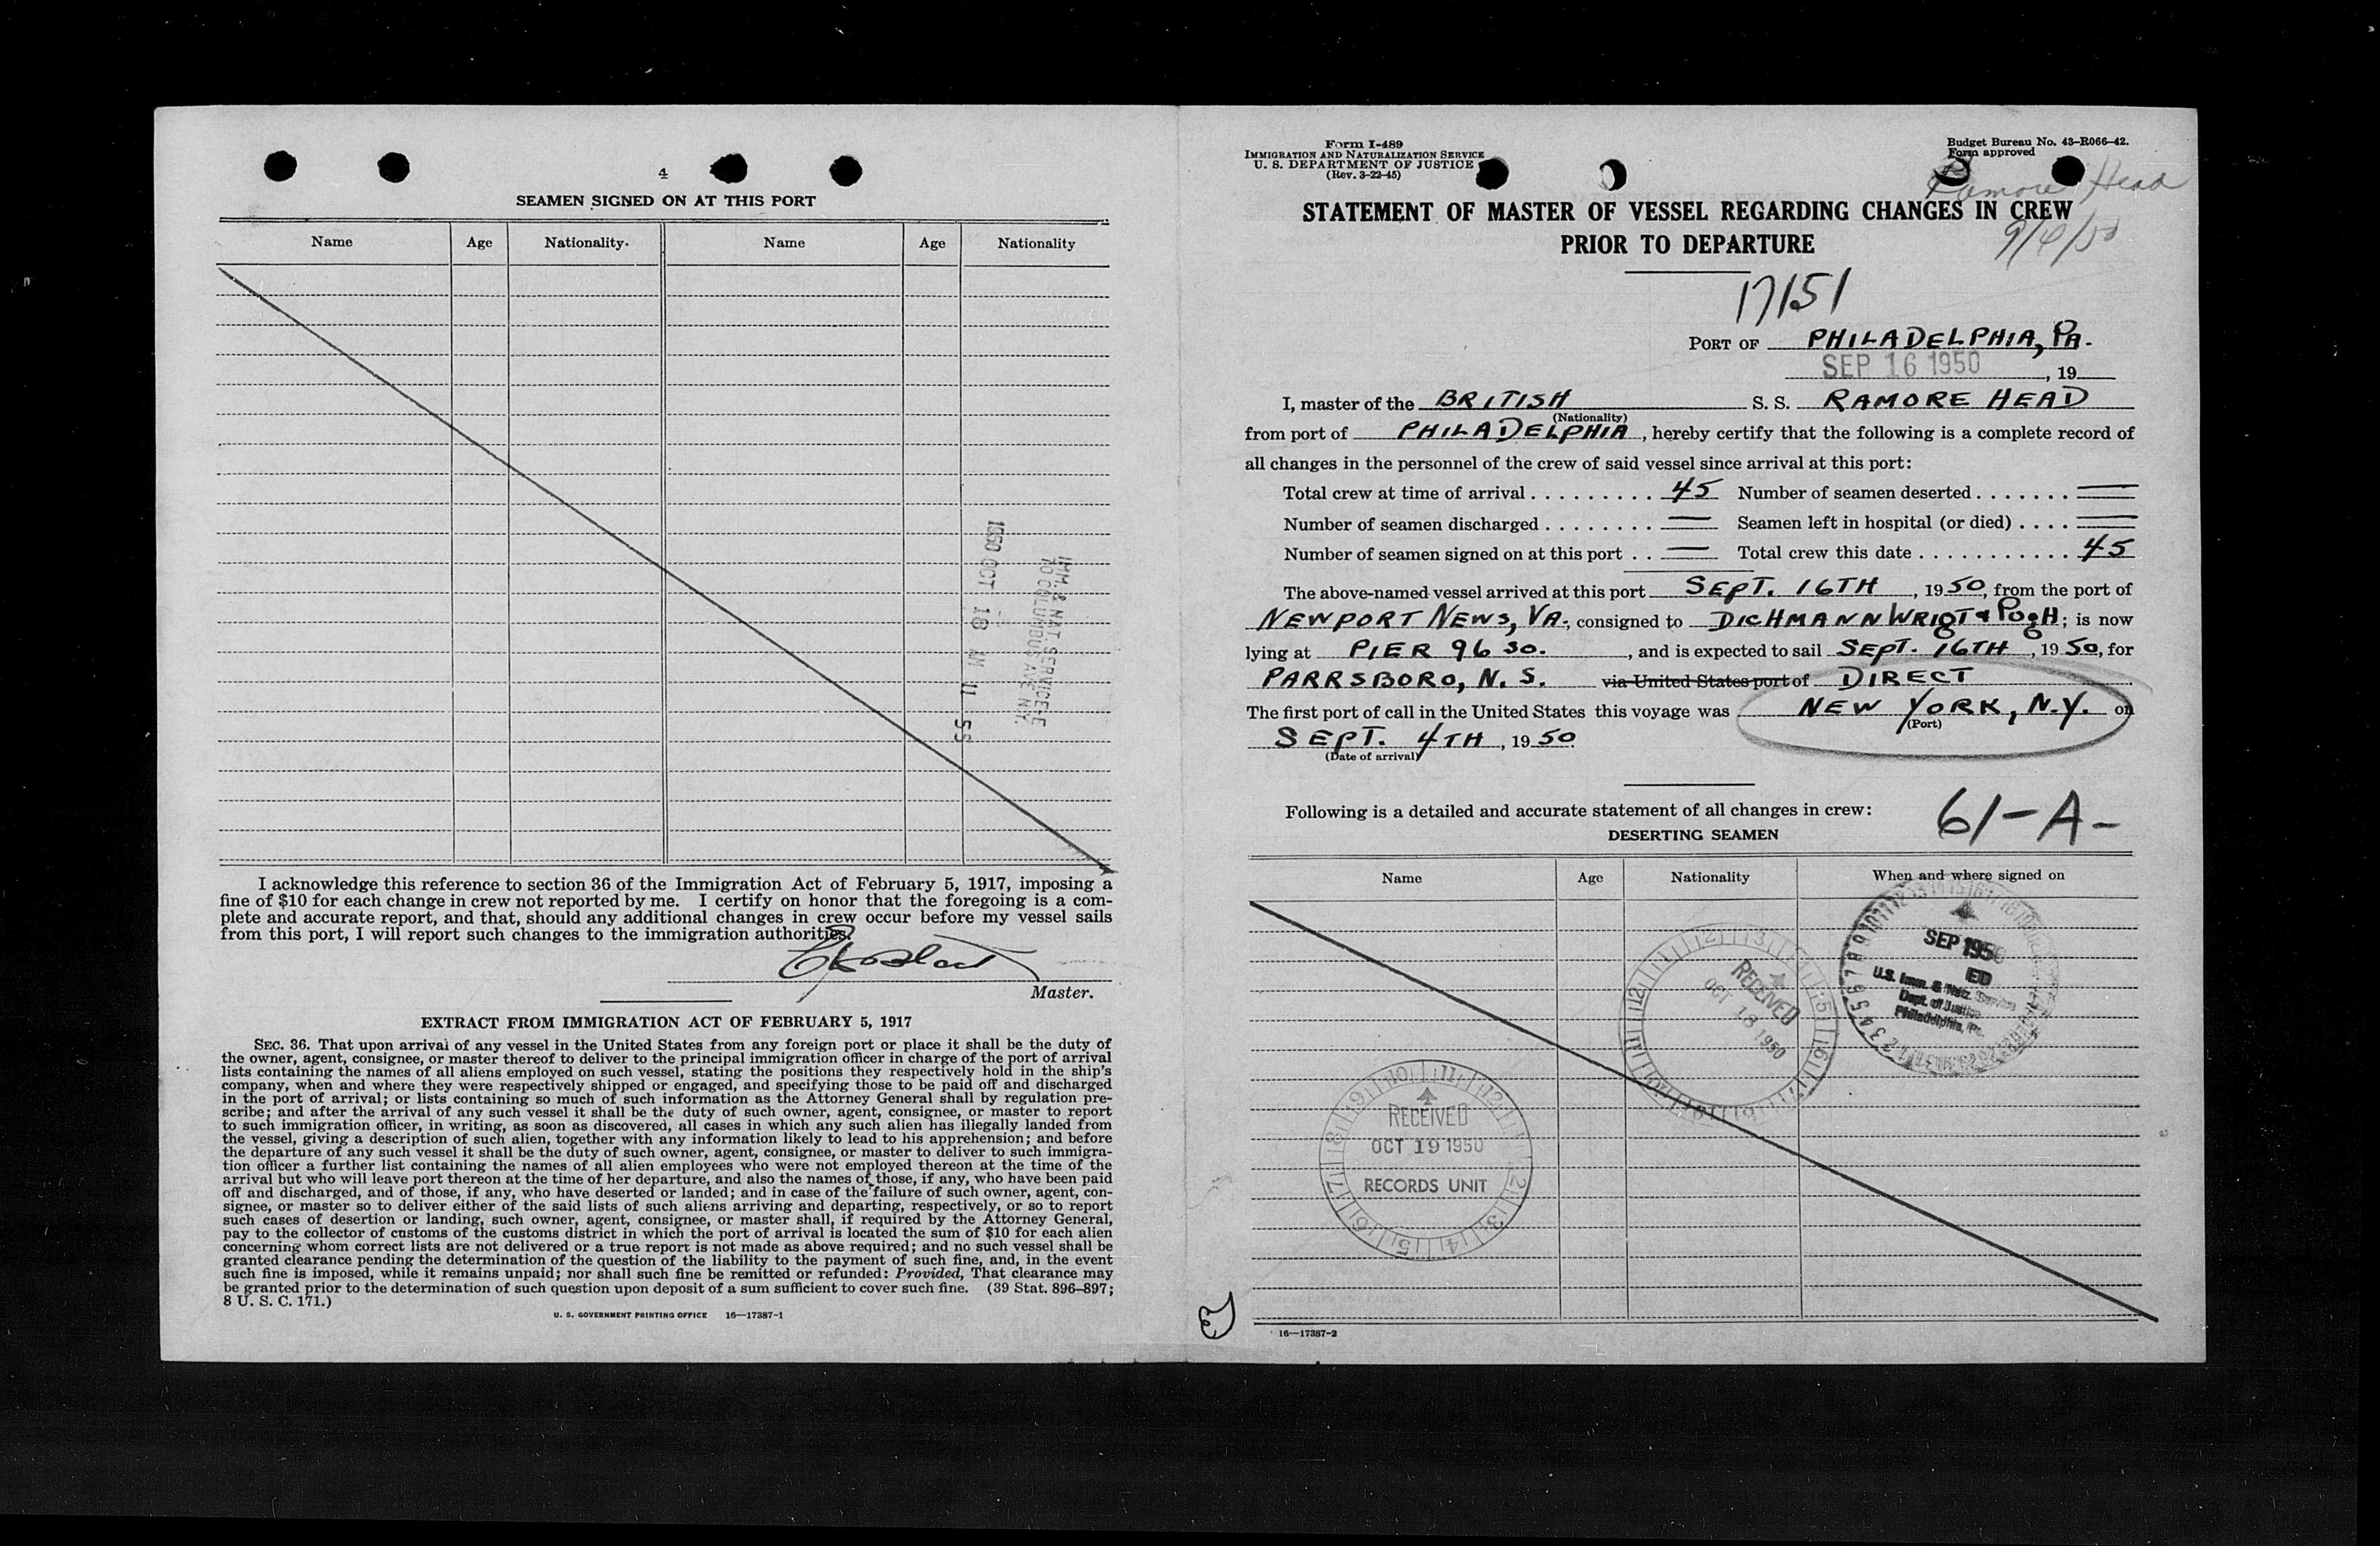 4
SEAMEN SIGNED ON AT THIS PORT
Name Age Nationality. Name Age Nationality
IMM. & NAT. SERVICE
70 COLUMBUS AVE. N.Y.
1950 OCT 18 AM 11 55
I acknowledge this reference to section 36 of the Immigration Act of February 5, 1917, imposing a
fine of $10 for each change in crew not reported by me. I certify on honor that the foregoing is a com-
plete and accurate report, and that, should any additional changes in crew occur before my vessel sails
from this port, I will report such changes to the immigration authorities.
Master.
EXTRACT FROM IMMIGRATION ACT OF FEBRUARY 5, 1917
SEC. 36. That upon arrival of any vessel in the United States from any foreign port or place it shall be the duty of
the owner, agent, consignee, or master thereof to deliver to the principal immigration officer in charge of the port of arrival
lists containing the names of all aliens employed on such vessel, stating the positions they respectively hold in the ship's
company, when and where they were respectively shipped or engaged, and specifying those to be paid off and discharged
in the port of arrival; or lists containing so much of such information as the Attorney General shall by regulation pre-
scribe; and after the arrival of any such vessel it shall be the duty of such owner, agent, consignee, or master to report
to such immigration officer, in writing, as soon as discovered, all cases in which any such alien has illegally landed from
the vessel, giving a description of such alien, together with any information likely to lead to his apprehension; and before
the departure of any such vessel it shall be the duty of such owner, agent, consignee, or master to deliver to such immigra-
tion officer a further list containing the names of all alien employees who were not employed thereon at the time of the
arrival but who will leave port thereon at the time of her departure, and also the names of those, if any, who have been paid
off and discharged, and of those, if any, who have deserted or landed; and in case of the failure of such owner, agent, con-
signee, or master so to deliver either of the said lists of such aliens arriving and departing, respectively, or so to report
such cases of desertion or landing, such owner, agent, consignee, or master shall, if required by the Attorney General,
pay to the collector of customs of the customs district in which the port of arrival is located the sum of $10 for each alien
concerning whom correct lists are not delivered or a true report is not made as above required; and no such vessel shall be
granted clearance pending the determination of the question of the liability to the payment of such fine, and, in the event
such fine is imposed, while it remains unpaid; nor shall such fine be remitted or refunded: Provided, That clearance may
be granted prior to the determination of such question upon deposit of a sum sufficient to cover such fine. (39 Stat. 896–897;
8 U. S. C. 171.)
U. S. GOVERNMENT PRINTING OFFICE 16—17387-1
Form I-489
IMMIGRATION AND NATURALIZATION SERVICE
U. S. DEPARTMENT OF JUSTICE
(Rev. 3-22-45)
Budget Bureau No. 43-R066-42.
Form approved
Ramore Head
STATEMENT OF MASTER OF VESSEL REGARDING CHANGES IN CREW
PRIOR TO DEPARTURE
9/4/50
17151
PORT OF PHILADELPHIA, PA.
SEP 16 1950, 19
I, master of the BRITISH S. S. RAMORE HEAD
(Nationality)
from port of PHILADELPHIA, hereby certify that the following is a complete record of
all changes in the personnel of the crew of said vessel since arrival at this port:
Total crew at time of arrival . . . . . . . . . 45 Number of seamen deserted . . . . . . . —
Number of seamen discharged . . . . . . . . — Seamen left in hospital (or died) . . . . —
Number of seamen signed on at this port . . — Total crew this date . . . . . . . . . . . 45
The above-named vessel arrived at this port SEPT. 16TH, 1950, from the port of
NEWPORT NEWS, VA., consigned to DICHMANN WRIGT & PUGH; is now
lying at PIER 96 SO., and is expected to sail SEPT. 16TH, 1950, for
PARRSBORO, N. S. via United States port of DIRECT
The first port of call in the United States this voyage was NEW YORK, N.Y. on
(Port)
SEPT. 4TH, 1950
(Date of arrival)
Following is a detailed and accurate statement of all changes in crew:
61-A-
DESERTING SEAMEN
Name Age Nationality When and where signed on
SEP 1950
ED
U.S. Imm. & Natz. Service
Dept. of Justice
Philadelphia, Pa.
RECEIVED
OCT 18 1950
RECEIVED
OCT 19 1950
RECORDS UNIT
16—17387-2